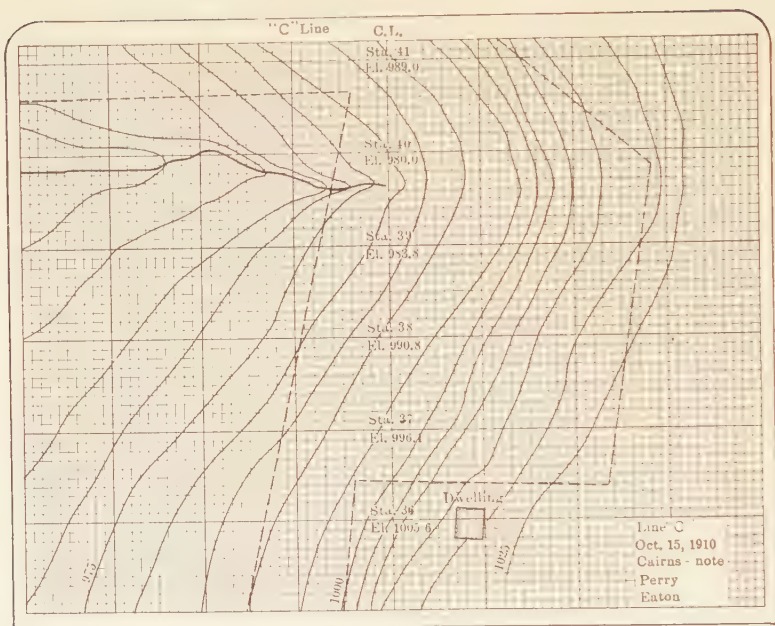 "C" Line C.L.
Sta. 41
El. 989.0
Sta. 40
El. 980.0
Sta. 39
El. 983.8
Sta. 38
El. 990.8
Sta. 37
El. 996.4
Sta. 36
El. 1005.6
Dwelling
975
1000
1025
Line C
Oct. 15, 1910
Cairns - note
Perry
Eaton